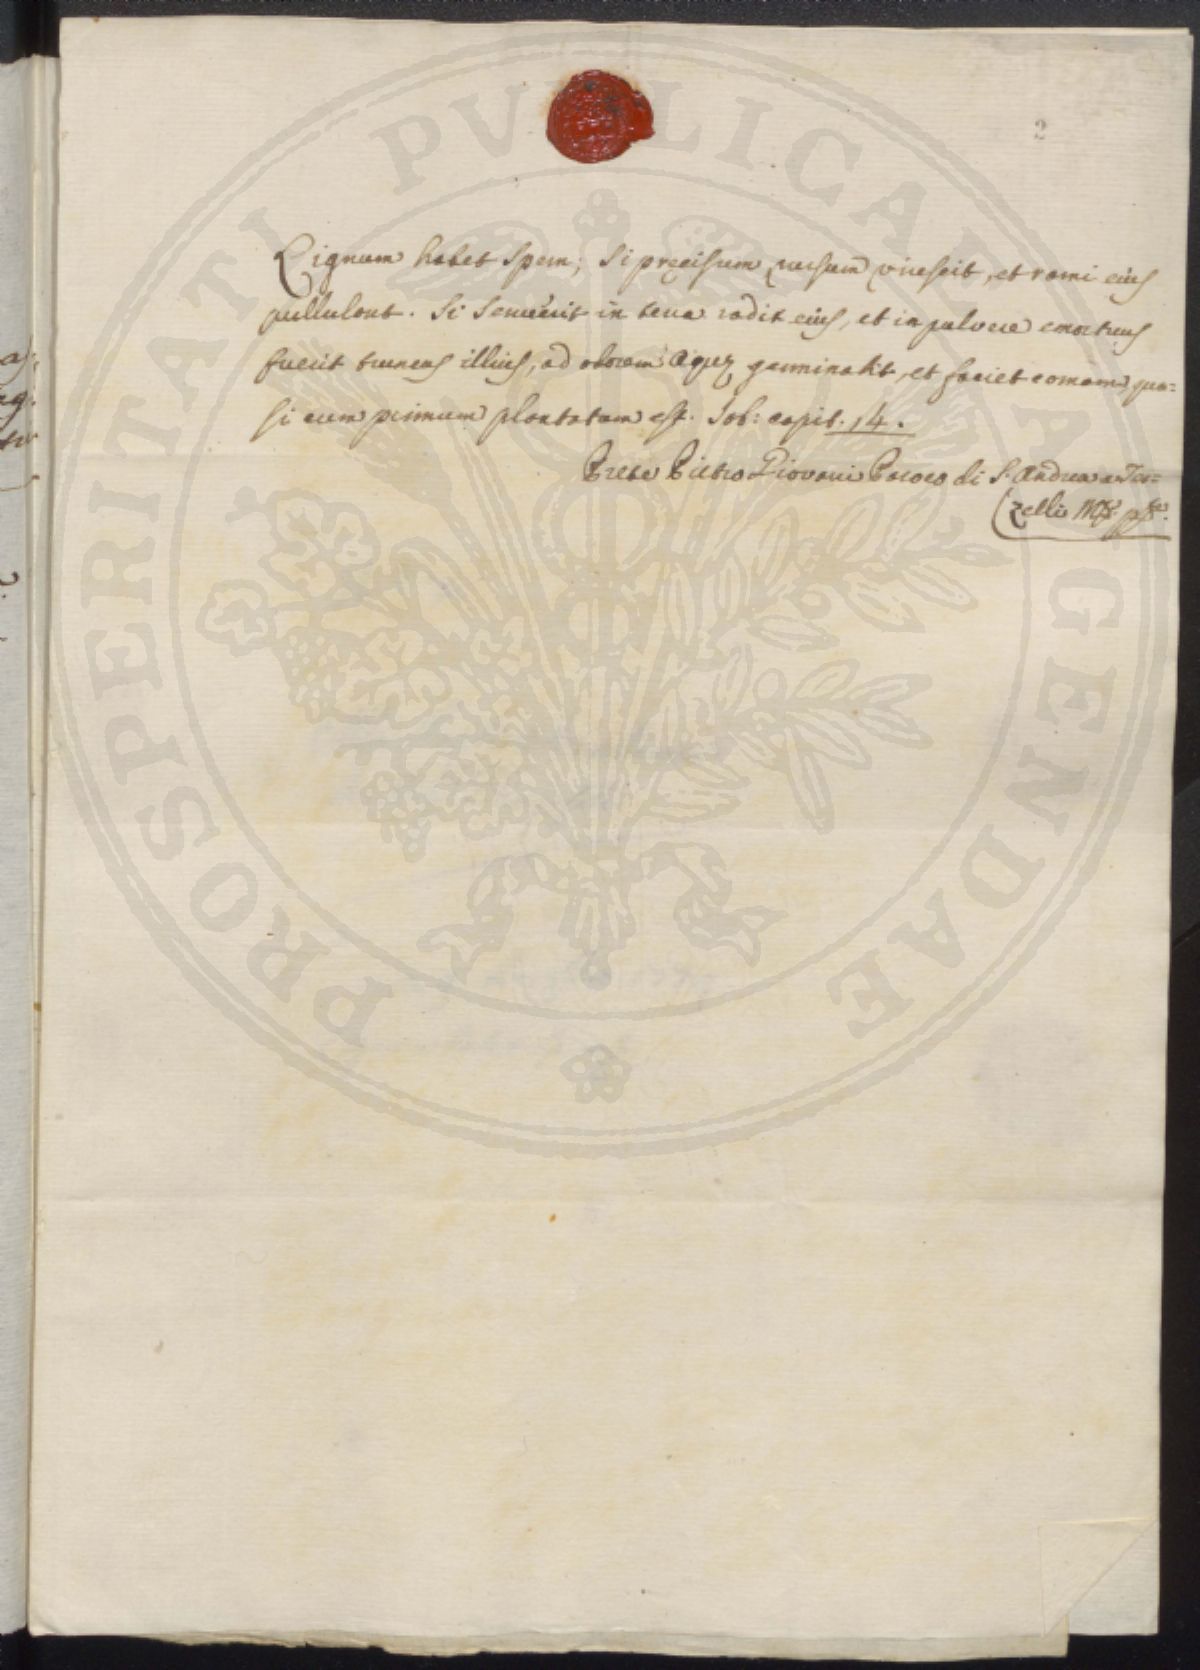 2
Lignum habet spem; si pręcisum rursum virescit, et rami eius
pullulant. Si senuerit in terra radix eius, et in pulvere emortuus
fuerit truncus illius, ad odorem aquę germinabit, et faciet comam, qua=
si cum primum plantatum est. Job: capit. 14.
Prete Pietro Giovani Paroco di S. Andrea a Ter=
zelli
PROSPERITATI PVBLICAE AVGENDAE